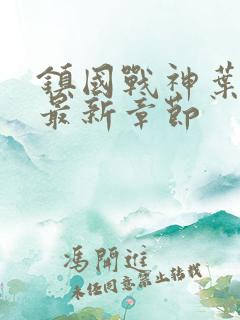 鎮國戰神葉
最新章節
馮開進
未経同意禁止转载